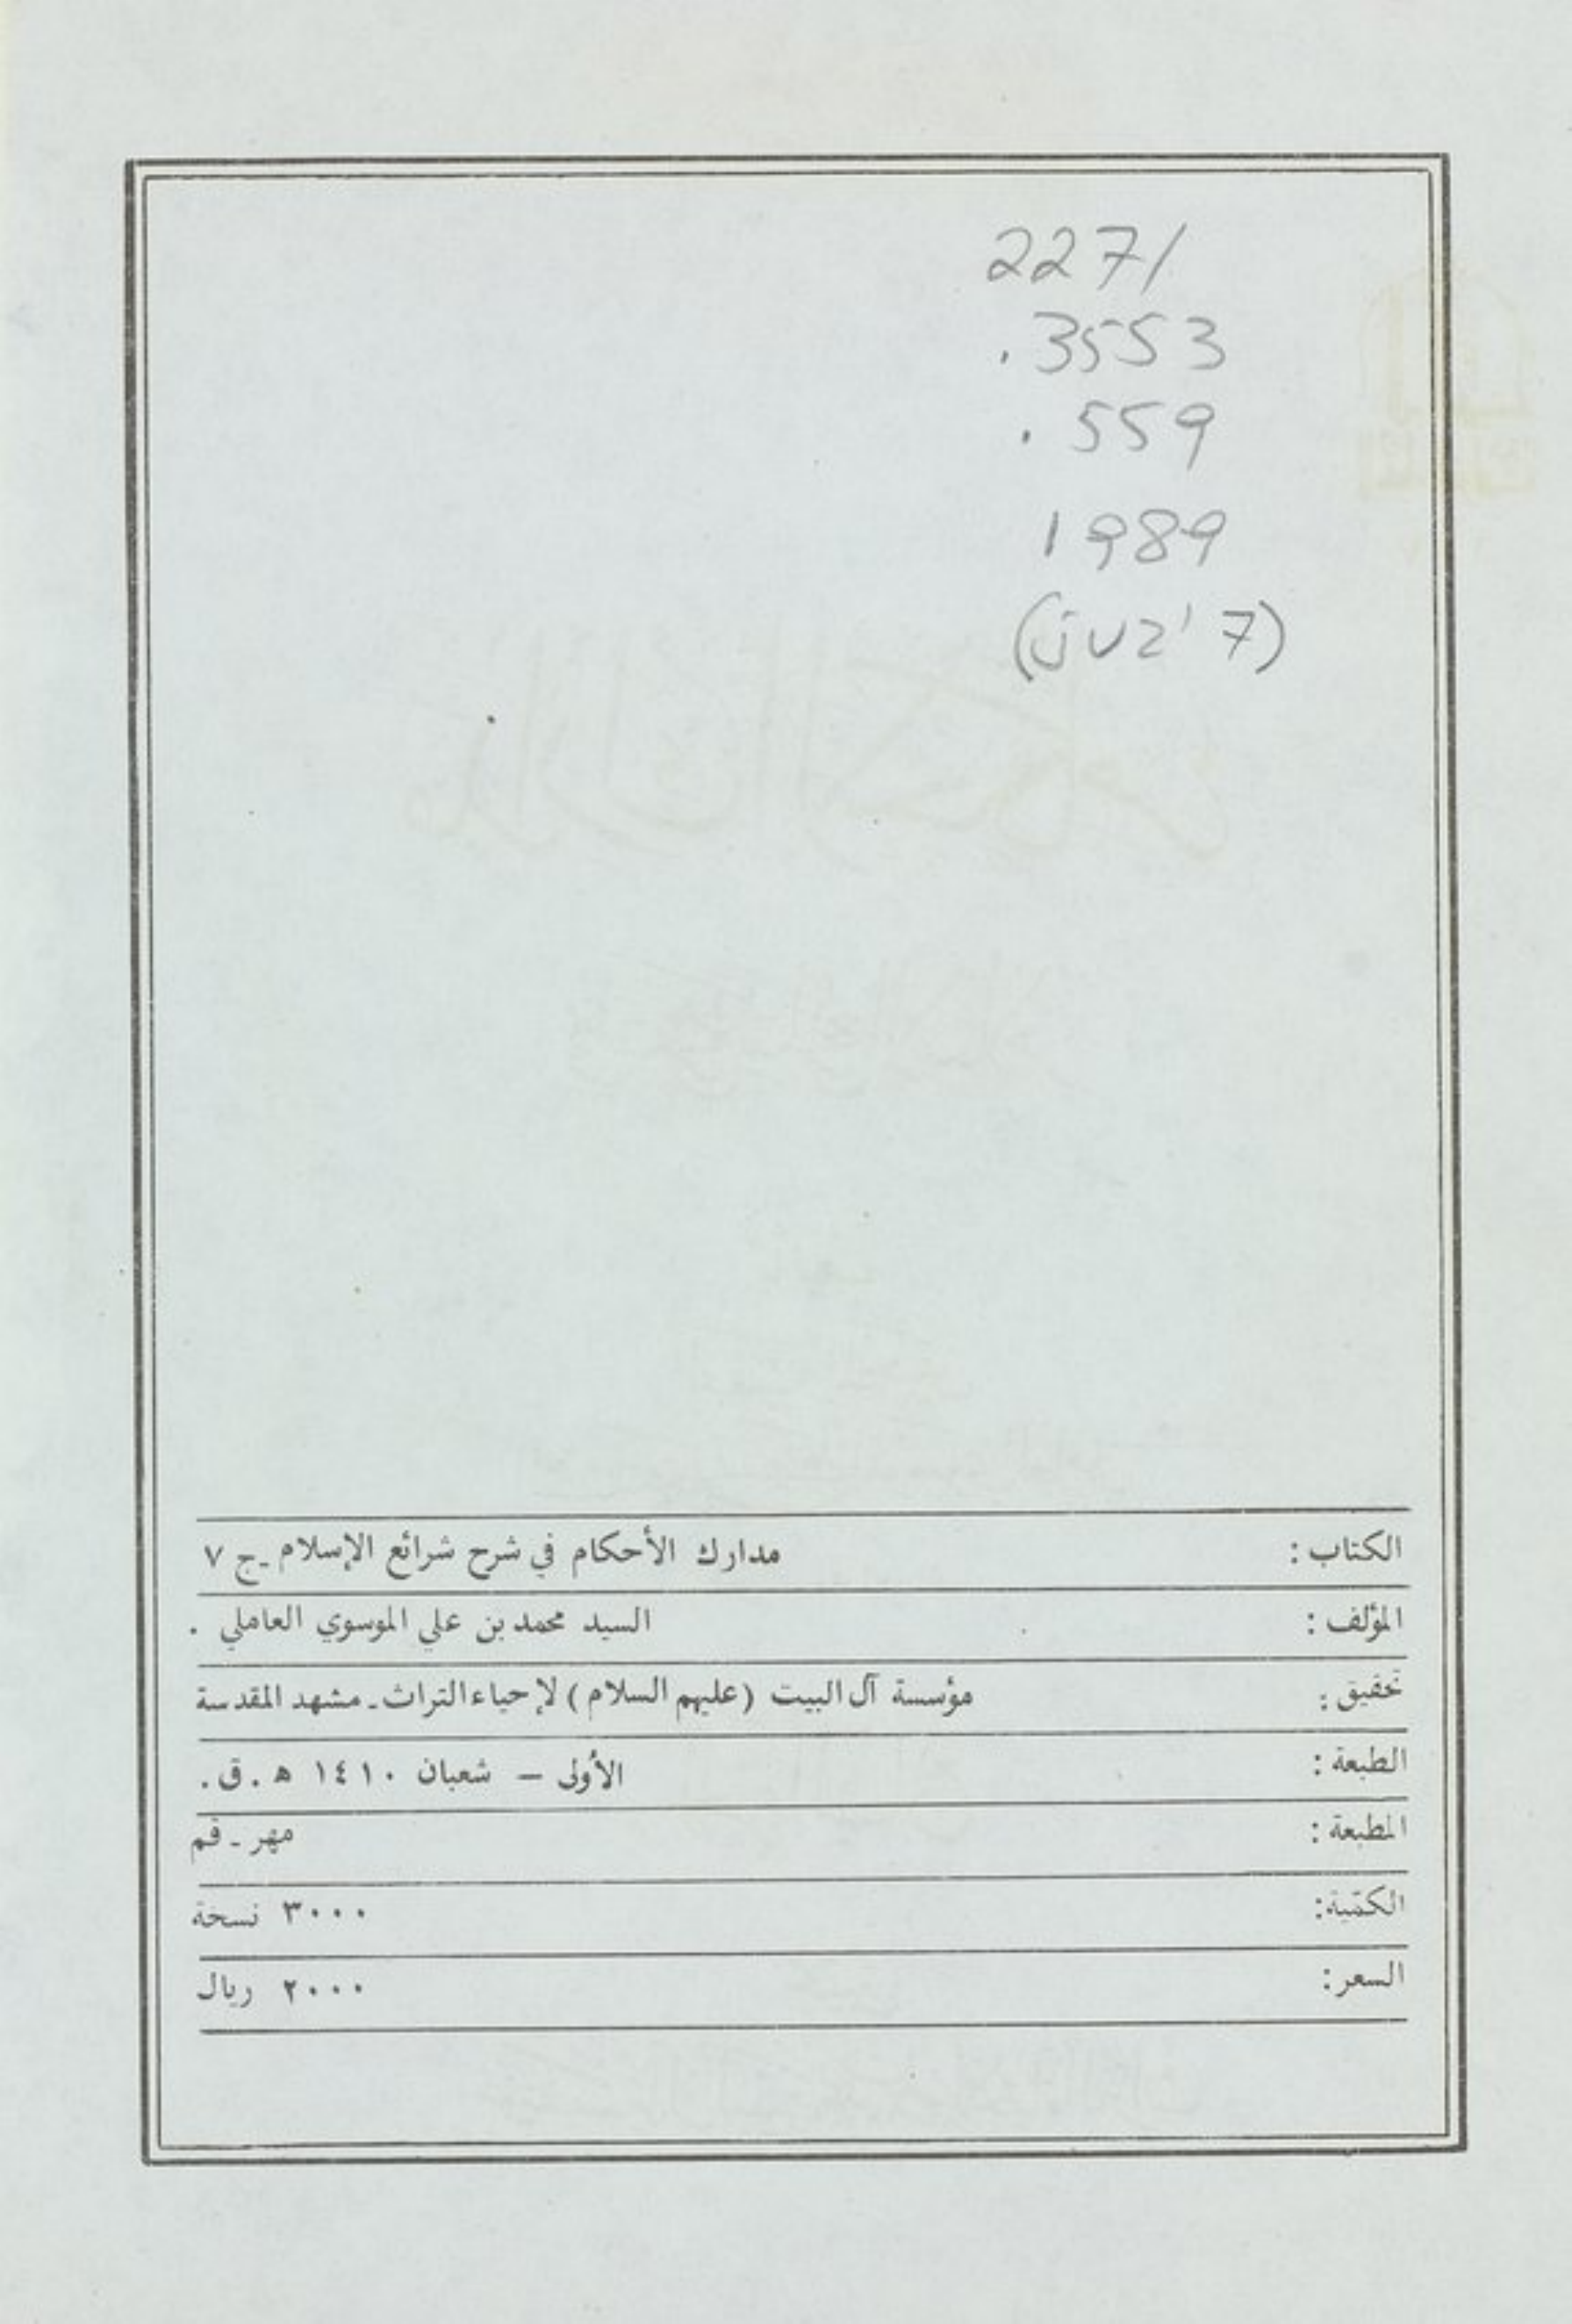 2271
.3553
.559
1989
(juz' 7)
الكتاب : مدارك الأحكام في شرح شرائع الإسلام ـ ج ٧
المؤلف : السيد محمد بن علي الموسوي العاملي .
تحقيق : مؤسسة آل البيت (عليهم السلام) لإحياء التراث ـ مشهد المقدسة
الطبعة : الأولى – شعبان ١٤١٠ هـ . ق .
المطبعة : مهر ـ قم
الكمّية: ٣٠٠٠ نسخة
السعر: ٢٠٠٠ ريال